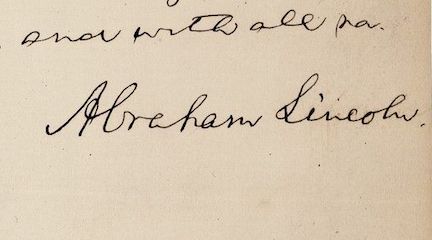 and with all
Abraham Lincoln.